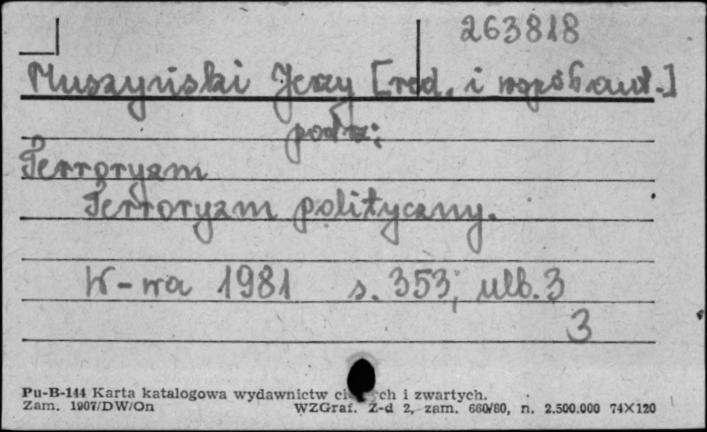 263818
Muszyński Jerzy [red. i współaut.]
patrz:
Terroryzm
Terroryzm polityczny.
W-wa 1981 s. 353, ulb. 3
3
Pu-B-144 Karta katalogowa wydawnictw ciągłych i zwartych.
Zam. 1907/DW/On WZGraf. Z-d 2, zam. 660/80, n. 2.500.000 74×120